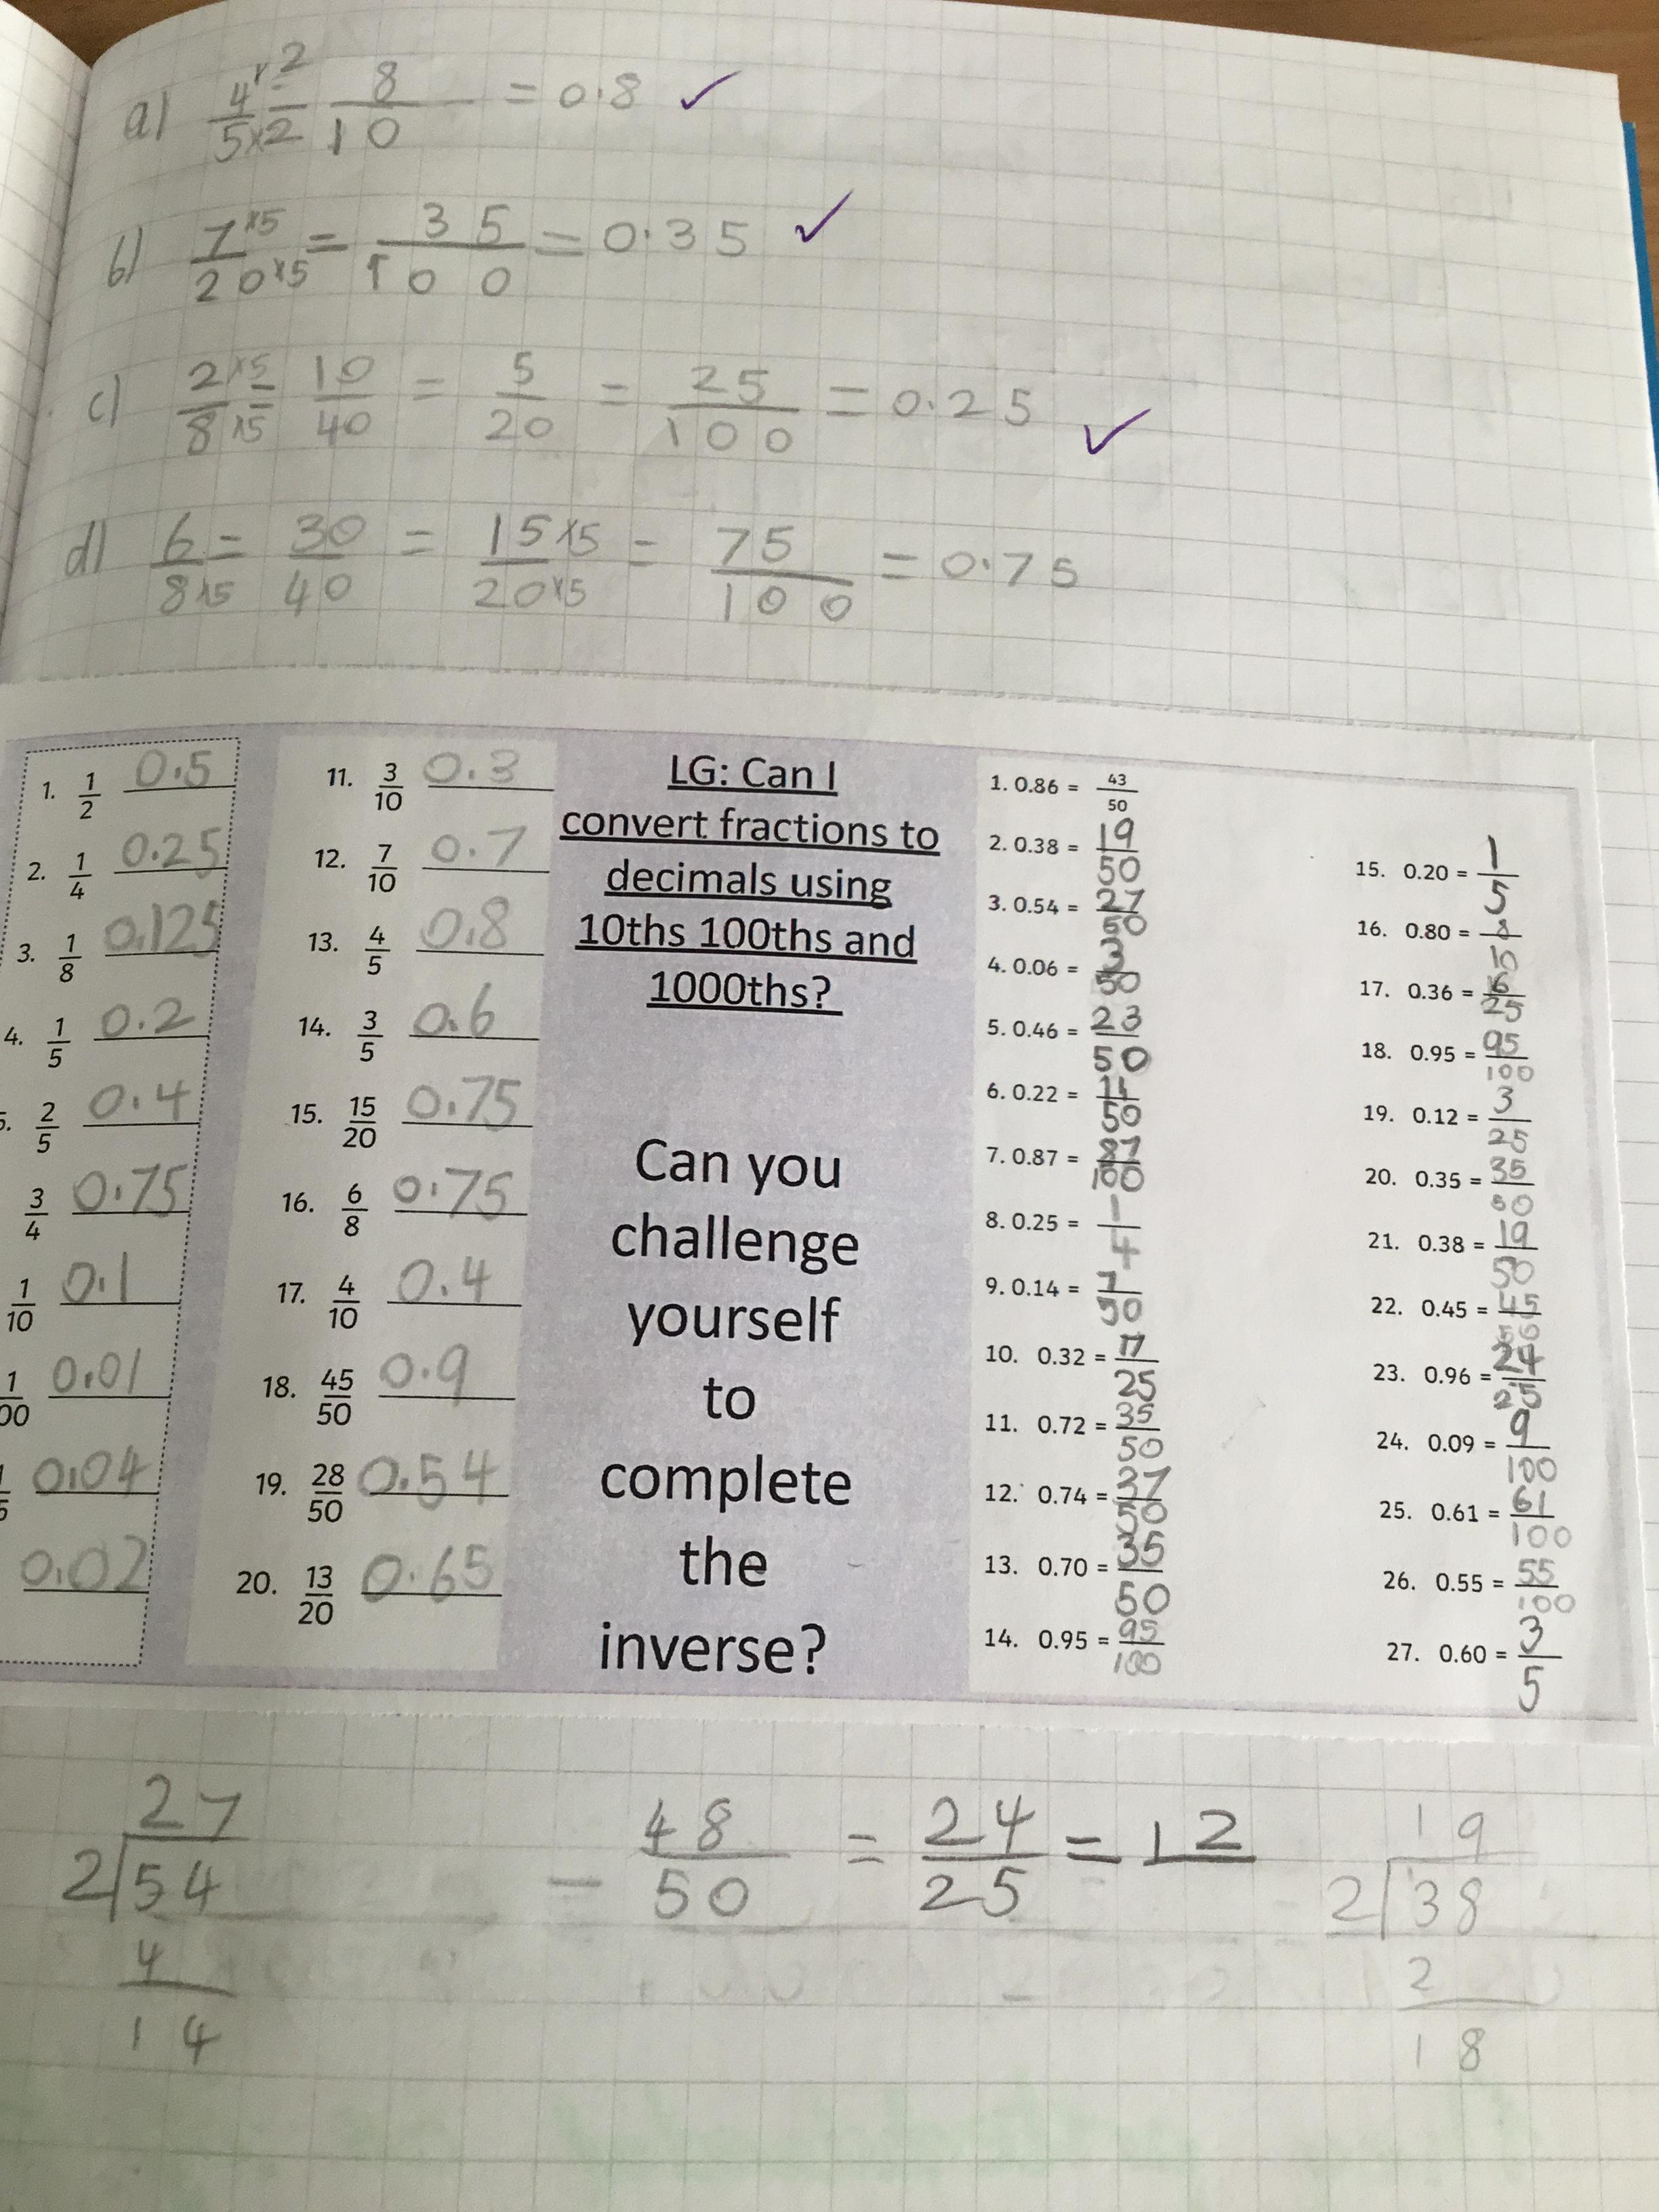 a) 4×2/5×2 = 8/10 = 0.8 ✓
b) 7×5/20×5 = 35/100 = 0.35 ✓
c) 2×5/8×5 = 10/40 = 5/20 = 25/100 = 0.25 ✓
d) 6/8×5 = 30/40 = 15×5/20×5 = 75/100 = 0.75
1. 1/2 0.5
2. 1/4 0.25
3. 1/8 0.125
4. 1/5 0.2
5. 2/5 0.4
3/4 0.75
1/10 0.1
1/00 0.01
0.04
0.02
11. 3/10 0.3
12. 7/10 0.7
13. 4/5 0.8
14. 3/5 0.6
15. 15/20 0.75
16. 6/8 0.75
17. 4/10 0.4
18. 45/50 0.9
19. 28/50 0.54
20. 13/20 0.65
LG: Can I
convert fractions to
decimals using
10ths 100ths and
1000ths?
Can you
challenge
yourself
to
complete
the
inverse?
1. 0.86 = 43/50
2. 0.38 = 19/50
3. 0.54 = 27/50
4. 0.06 = 3/50
5. 0.46 = 23/50
6. 0.22 = 11/50
7. 0.87 = 87/100
8. 0.25 = 1/4
9. 0.14 = 7/50
10. 0.32 = /25
11. 0.72 = 35/50
12. 0.74 = 37/50
13. 0.70 = 35/50
14. 0.95 = 95/100
15. 0.20 = 1/5
16. 0.80 = 8/10
17. 0.36 = /25
18. 0.95 = 95/100
19. 0.12 = 3/25
20. 0.35 = 35/
21. 0.38 = 19/50
22. 0.45 = 45/
23. 0.96 = 24/25
24. 0.09 = 9/100
25. 0.61 = 61/100
26. 0.55 = 55/100
27. 0.60 = 3/5
27
2 54
4
14
= 48/50 = 24/25 = 12
19
2 38
2
18